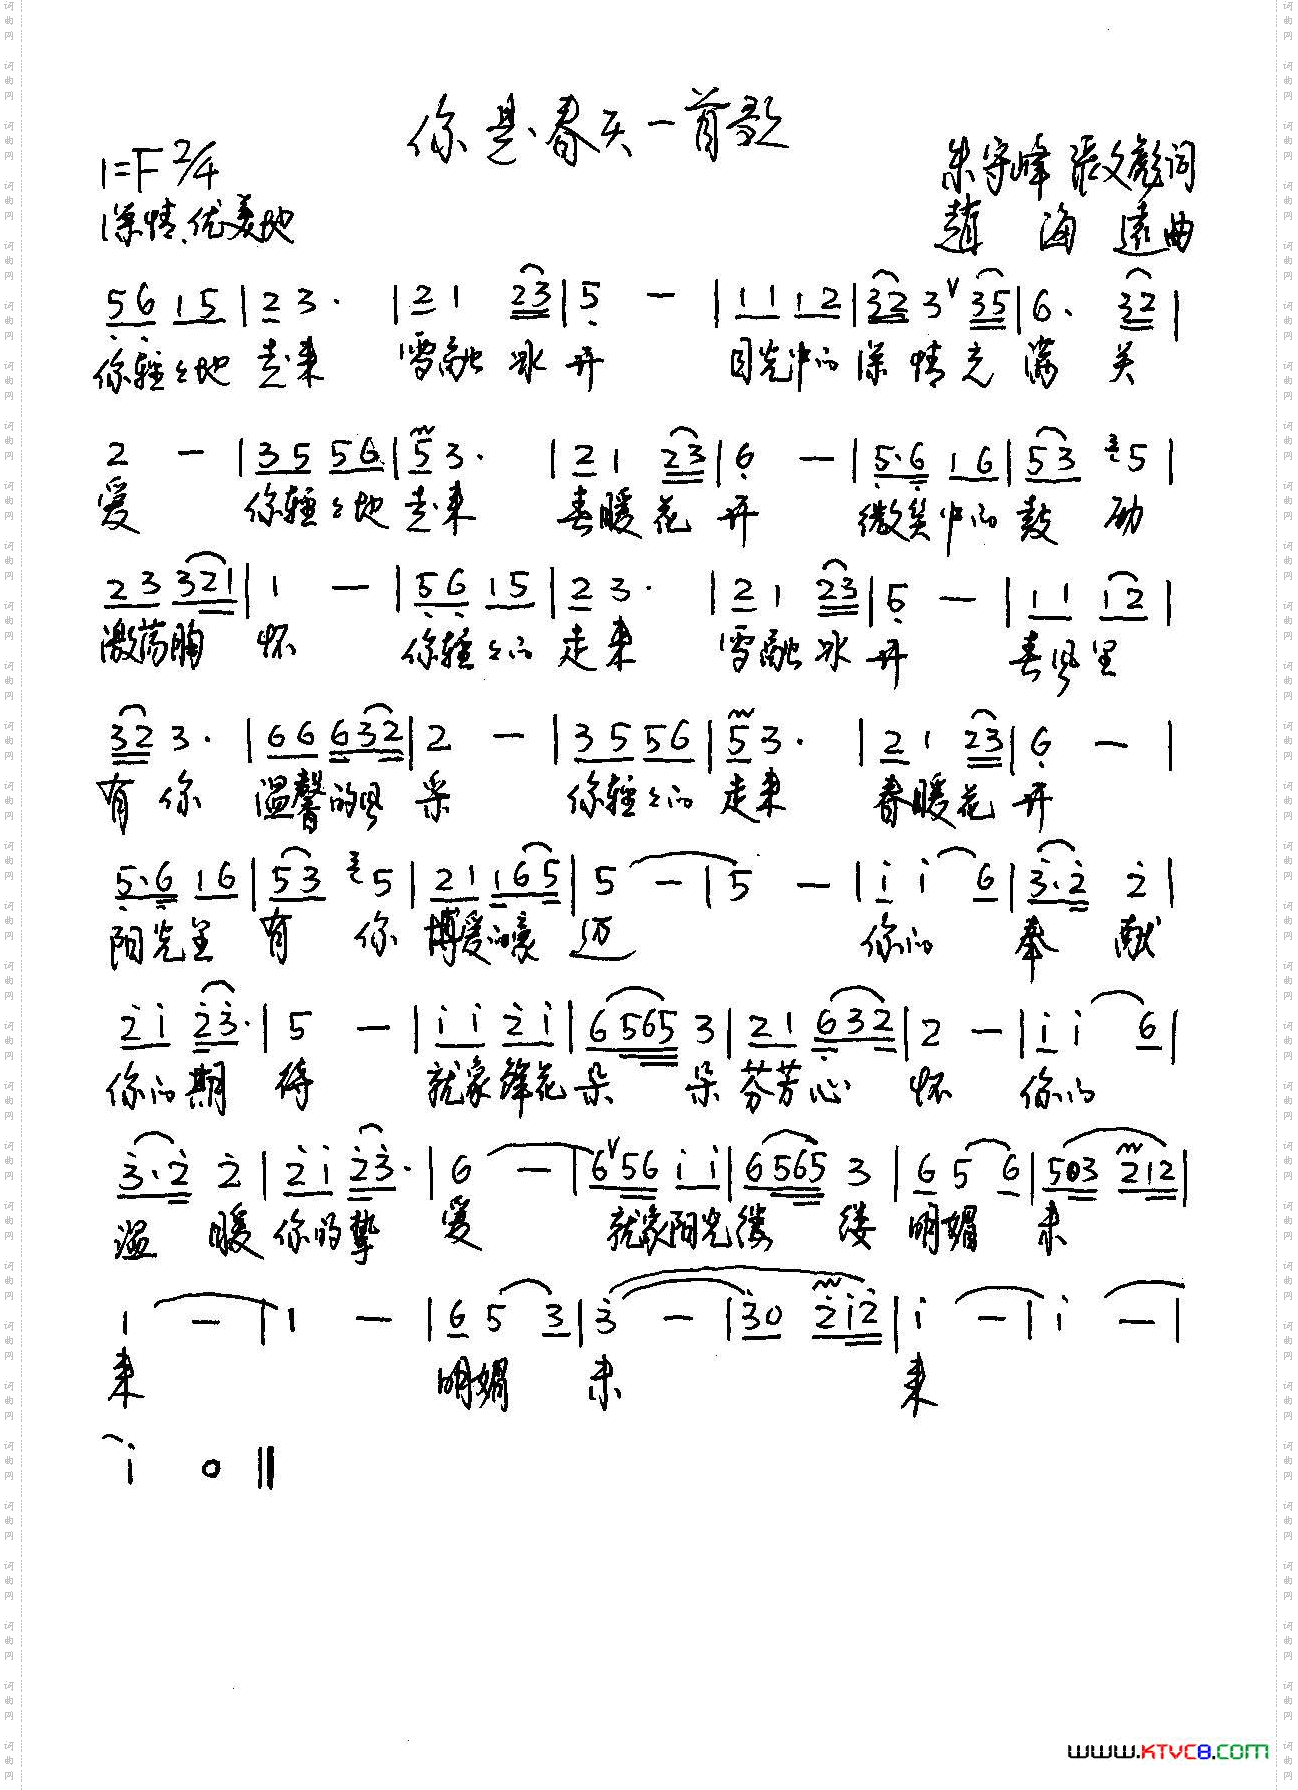 你是春天一首歌
1=F 2/4
朱守峰 张文彪词
深情、优美地
赵海远曲
5 6 1 5 | 2 3 . | 2 1 2 3 | 5 — | 1 1 1 2 | 3 2 3 V 3 5 | 6 . 3 2 |
你轻轻地 走来 雪融冰开 目光中的深情充满关
2 — | 3 5 5 6 | 5 3 . | 2 1 2 3 | 6 — | 5 . 6 1 6 | 5 3 3 5 |
爱 你轻轻地 走来 春暖花开 微笑中的鼓励
2 3 3 2 1 | 1 — | 5 6 1 5 | 2 3 . | 2 1 2 3 | 5 — | 1 1 1 2 |
激荡胸怀 你轻轻的 走来 雪融冰开 春风里
3 2 3 . | 6 6 6 3 2 | 2 — | 3 5 5 6 | 5 3 . | 2 1 2 3 | 6 — |
有你 温馨的风采 你轻轻的 走来 春暖花开
5 . 6 1 6 | 5 3 3 5 | 2 1 1 6 5 | 5 — | 5 — | i i 6 | 3 . 2 2 |
阳光里 有你 博爱的豪迈 你的 奉献
2 i 2 3 . | 5 — | i i 2 i | 6 5 6 5 3 | 2 1 6 3 2 | 2 — | i i 6 |
你的期待 就象锋花朵朵芬芳心怀 你的
3 . 2 2 | 2 i 2 3 . | 6 — | 6 V 5 6 i i | 6 5 6 5 3 | 6 5 6 | 5 0 3 2 1 2 |
温暖 你的挚爱 就象阳光缕缕 明媚未
1 — | 1 — | 6 5 3 | 3 — | 3 0 2 i 2 | i — | i — |
来 明媚 未 来
i 0 ‖
www.KTVC8.com